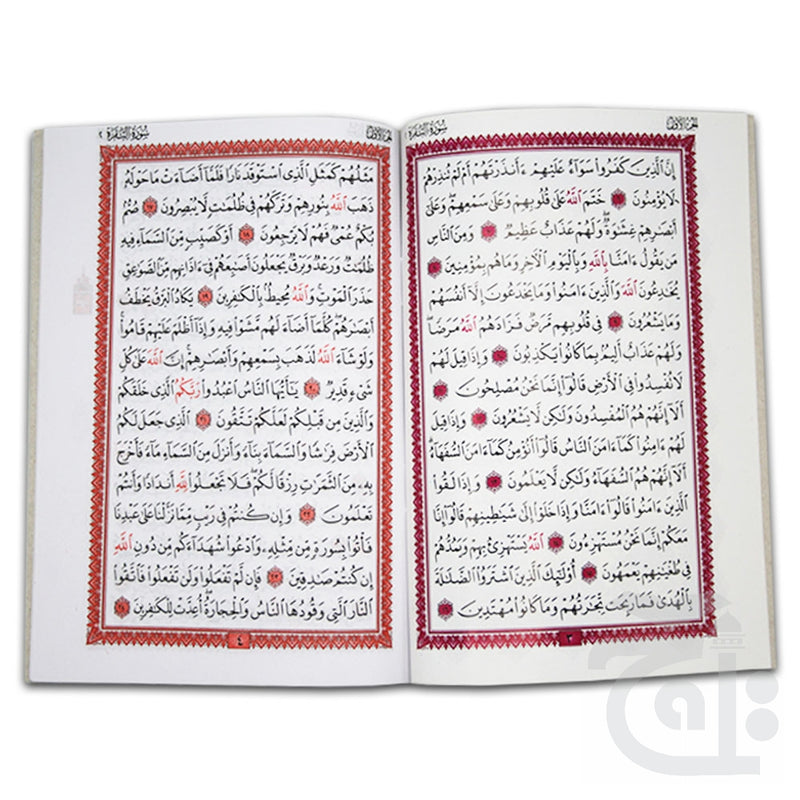 الجزء الأول
سورة البقرة
إِنَّ ٱلَّذِينَ كَفَرُوا۟ سَوَآءٌ عَلَيْهِمْ ءَأَنذَرْتَهُمْ أَمْ لَمْ تُنذِرْهُمْ
لَا يُؤْمِنُونَ ٦ خَتَمَ ٱللَّهُ عَلَىٰ قُلُوبِهِمْ وَعَلَىٰ سَمْعِهِمْ ۖ وَعَلَىٰٓ
أَبْصَٰرِهِمْ غِشَٰوَةٌ ۖ وَلَهُمْ عَذَابٌ عَظِيمٌ ٧ وَمِنَ ٱلنَّاسِ
مَن يَقُولُ ءَامَنَّا بِٱللَّهِ وَبِٱلْيَوْمِ ٱلْءَاخِرِ وَمَا هُم بِمُؤْمِنِينَ ٨
يُخَٰدِعُونَ ٱللَّهَ وَٱلَّذِينَ ءَامَنُوا۟ وَمَا يَخْدَعُونَ إِلَّآ أَنفُسَهُمْ
وَمَا يَشْعُرُونَ ٩ فِى قُلُوبِهِم مَّرَضٌ فَزَادَهُمُ ٱللَّهُ مَرَضًا ۖ
وَلَهُمْ عَذَابٌ أَلِيمٌۢ بِمَا كَانُوا۟ يَكْذِبُونَ ١٠ وَإِذَا قِيلَ لَهُمْ
لَا تُفْسِدُوا۟ فِى ٱلْأَرْضِ قَالُوٓا۟ إِنَّمَا نَحْنُ مُصْلِحُونَ ١١
أَلَآ إِنَّهُمْ هُمُ ٱلْمُفْسِدُونَ وَلَٰكِن لَّا يَشْعُرُونَ ١٢ وَإِذَا قِيلَ
لَهُمْ ءَامِنُوا۟ كَمَآ ءَامَنَ ٱلنَّاسُ قَالُوٓا۟ أَنُؤْمِنُ كَمَآ ءَامَنَ ٱلسُّفَهَآءُ ۗ
أَلَآ إِنَّهُمْ هُمُ ٱلسُّفَهَآءُ وَلَٰكِن لَّا يَعْلَمُونَ ١٣ وَإِذَا لَقُوا۟
ٱلَّذِينَ ءَامَنُوا۟ قَالُوٓا۟ ءَامَنَّا وَإِذَا خَلَوْا۟ إِلَىٰ شَيَٰطِينِهِمْ قَالُوٓا۟ إِنَّا
مَعَكُمْ إِنَّمَا نَحْنُ مُسْتَهْزِءُونَ ١٤ ٱللَّهُ يَسْتَهْزِئُ بِهِمْ وَيَمُدُّهُمْ
فِى طُغْيَٰنِهِمْ يَعْمَهُونَ ١٥ أُو۟لَٰٓئِكَ ٱلَّذِينَ ٱشْتَرَوُا۟ ٱلضَّلَٰلَةَ
بِٱلْهُدَىٰ فَمَا رَبِحَت تِّجَٰرَتُهُمْ وَمَا كَانُوا۟ مُهْتَدِينَ ١٦
٣
الجزء الأول
سورة البقرة ٢
مَثَلُهُمْ كَمَثَلِ ٱلَّذِى ٱسْتَوْقَدَ نَارًا فَلَمَّآ أَضَآءَتْ مَا حَوْلَهُۥ
ذَهَبَ ٱللَّهُ بِنُورِهِمْ وَتَرَكَهُمْ فِى ظُلُمَٰتٍ لَّا يُبْصِرُونَ ١٧ صُمٌّۢ
بُكْمٌ عُمْىٌ فَهُمْ لَا يَرْجِعُونَ ١٨ أَوْ كَصَيِّبٍ مِّنَ ٱلسَّمَآءِ فِيهِ
ظُلُمَٰتٌ وَرَعْدٌ وَبَرْقٌ يَجْعَلُونَ أَصَٰبِعَهُمْ فِىٓ ءَاذَانِهِم مِّنَ ٱلصَّوَٰعِقِ
حَذَرَ ٱلْمَوْتِ ۚ وَٱللَّهُ مُحِيطٌۢ بِٱلْكَٰفِرِينَ ١٩ يَكَادُ ٱلْبَرْقُ يَخْطَفُ
أَبْصَٰرَهُمْ ۖ كُلَّمَآ أَضَآءَ لَهُم مَّشَوْا۟ فِيهِ وَإِذَآ أَظْلَمَ عَلَيْهِمْ قَامُوا۟ ۚ
وَلَوْ شَآءَ ٱللَّهُ لَذَهَبَ بِسَمْعِهِمْ وَأَبْصَٰرِهِمْ ۚ إِنَّ ٱللَّهَ عَلَىٰ كُلِّ
شَىْءٍ قَدِيرٌ ٢٠ يَٰٓأَيُّهَا ٱلنَّاسُ ٱعْبُدُوا۟ رَبَّكُمُ ٱلَّذِى خَلَقَكُمْ
وَٱلَّذِينَ مِن قَبْلِكُمْ لَعَلَّكُمْ تَتَّقُونَ ٢١ ٱلَّذِى جَعَلَ لَكُمُ
ٱلْأَرْضَ فِرَٰشًا وَٱلسَّمَآءَ بِنَآءً وَأَنزَلَ مِنَ ٱلسَّمَآءِ مَآءً فَأَخْرَجَ
بِهِۦ مِنَ ٱلثَّمَرَٰتِ رِزْقًا لَّكُمْ ۖ فَلَا تَجْعَلُوا۟ لِلَّهِ أَندَادًا وَأَنتُمْ
تَعْلَمُونَ ٢٢ وَإِن كُنتُمْ فِى رَيْبٍ مِّمَّا نَزَّلْنَا عَلَىٰ عَبْدِنَا
فَأْتُوا۟ بِسُورَةٍ مِّن مِّثْلِهِۦ وَٱدْعُوا۟ شُهَدَآءَكُم مِّن دُونِ ٱللَّهِ
إِن كُنتُمْ صَٰدِقِينَ ٢٣ فَإِن لَّمْ تَفْعَلُوا۟ وَلَن تَفْعَلُوا۟ فَٱتَّقُوا۟
ٱلنَّارَ ٱلَّتِى وَقُودُهَا ٱلنَّاسُ وَٱلْحِجَارَةُ ۖ أُعِدَّتْ لِلْكَٰفِرِينَ ٢٤
٤